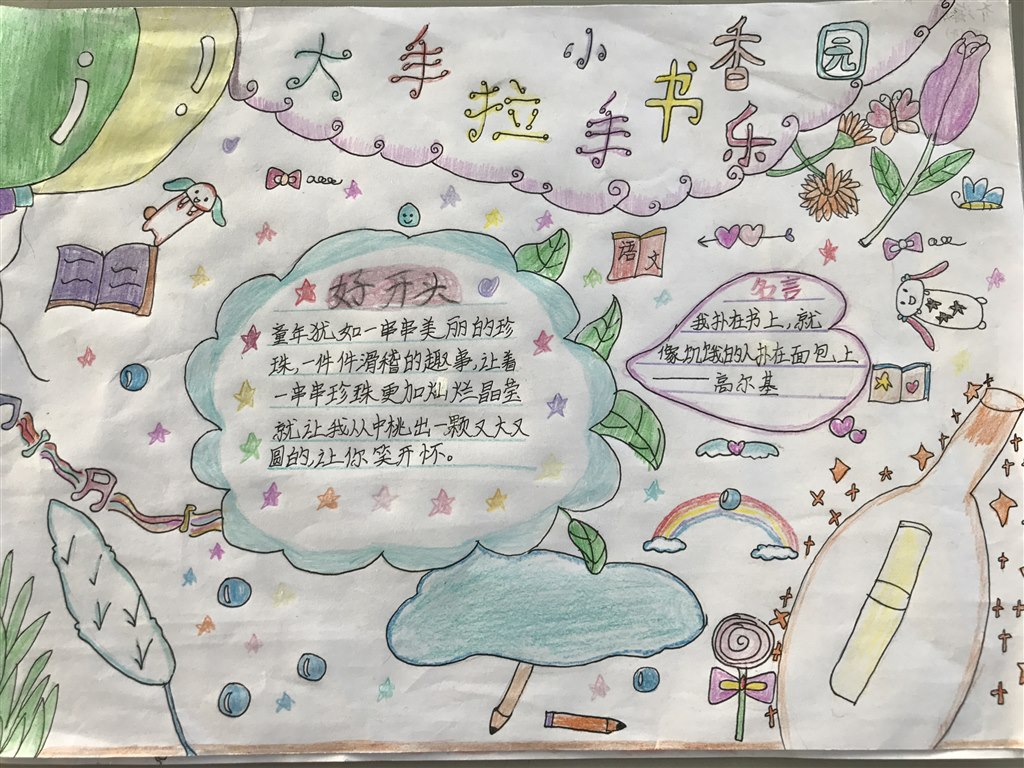 大手拉小手书香乐园
好开头
童年犹如一串串美丽的珍
珠,一件件滑稽的趣事,让着
一串串珍珠更加灿烂晶莹
就让我从中桃出一颗又大又
圆的,让你笑开怀。
语文
名言
我扑在书上,就
像饥饿的人扑在面包上
——高尔基